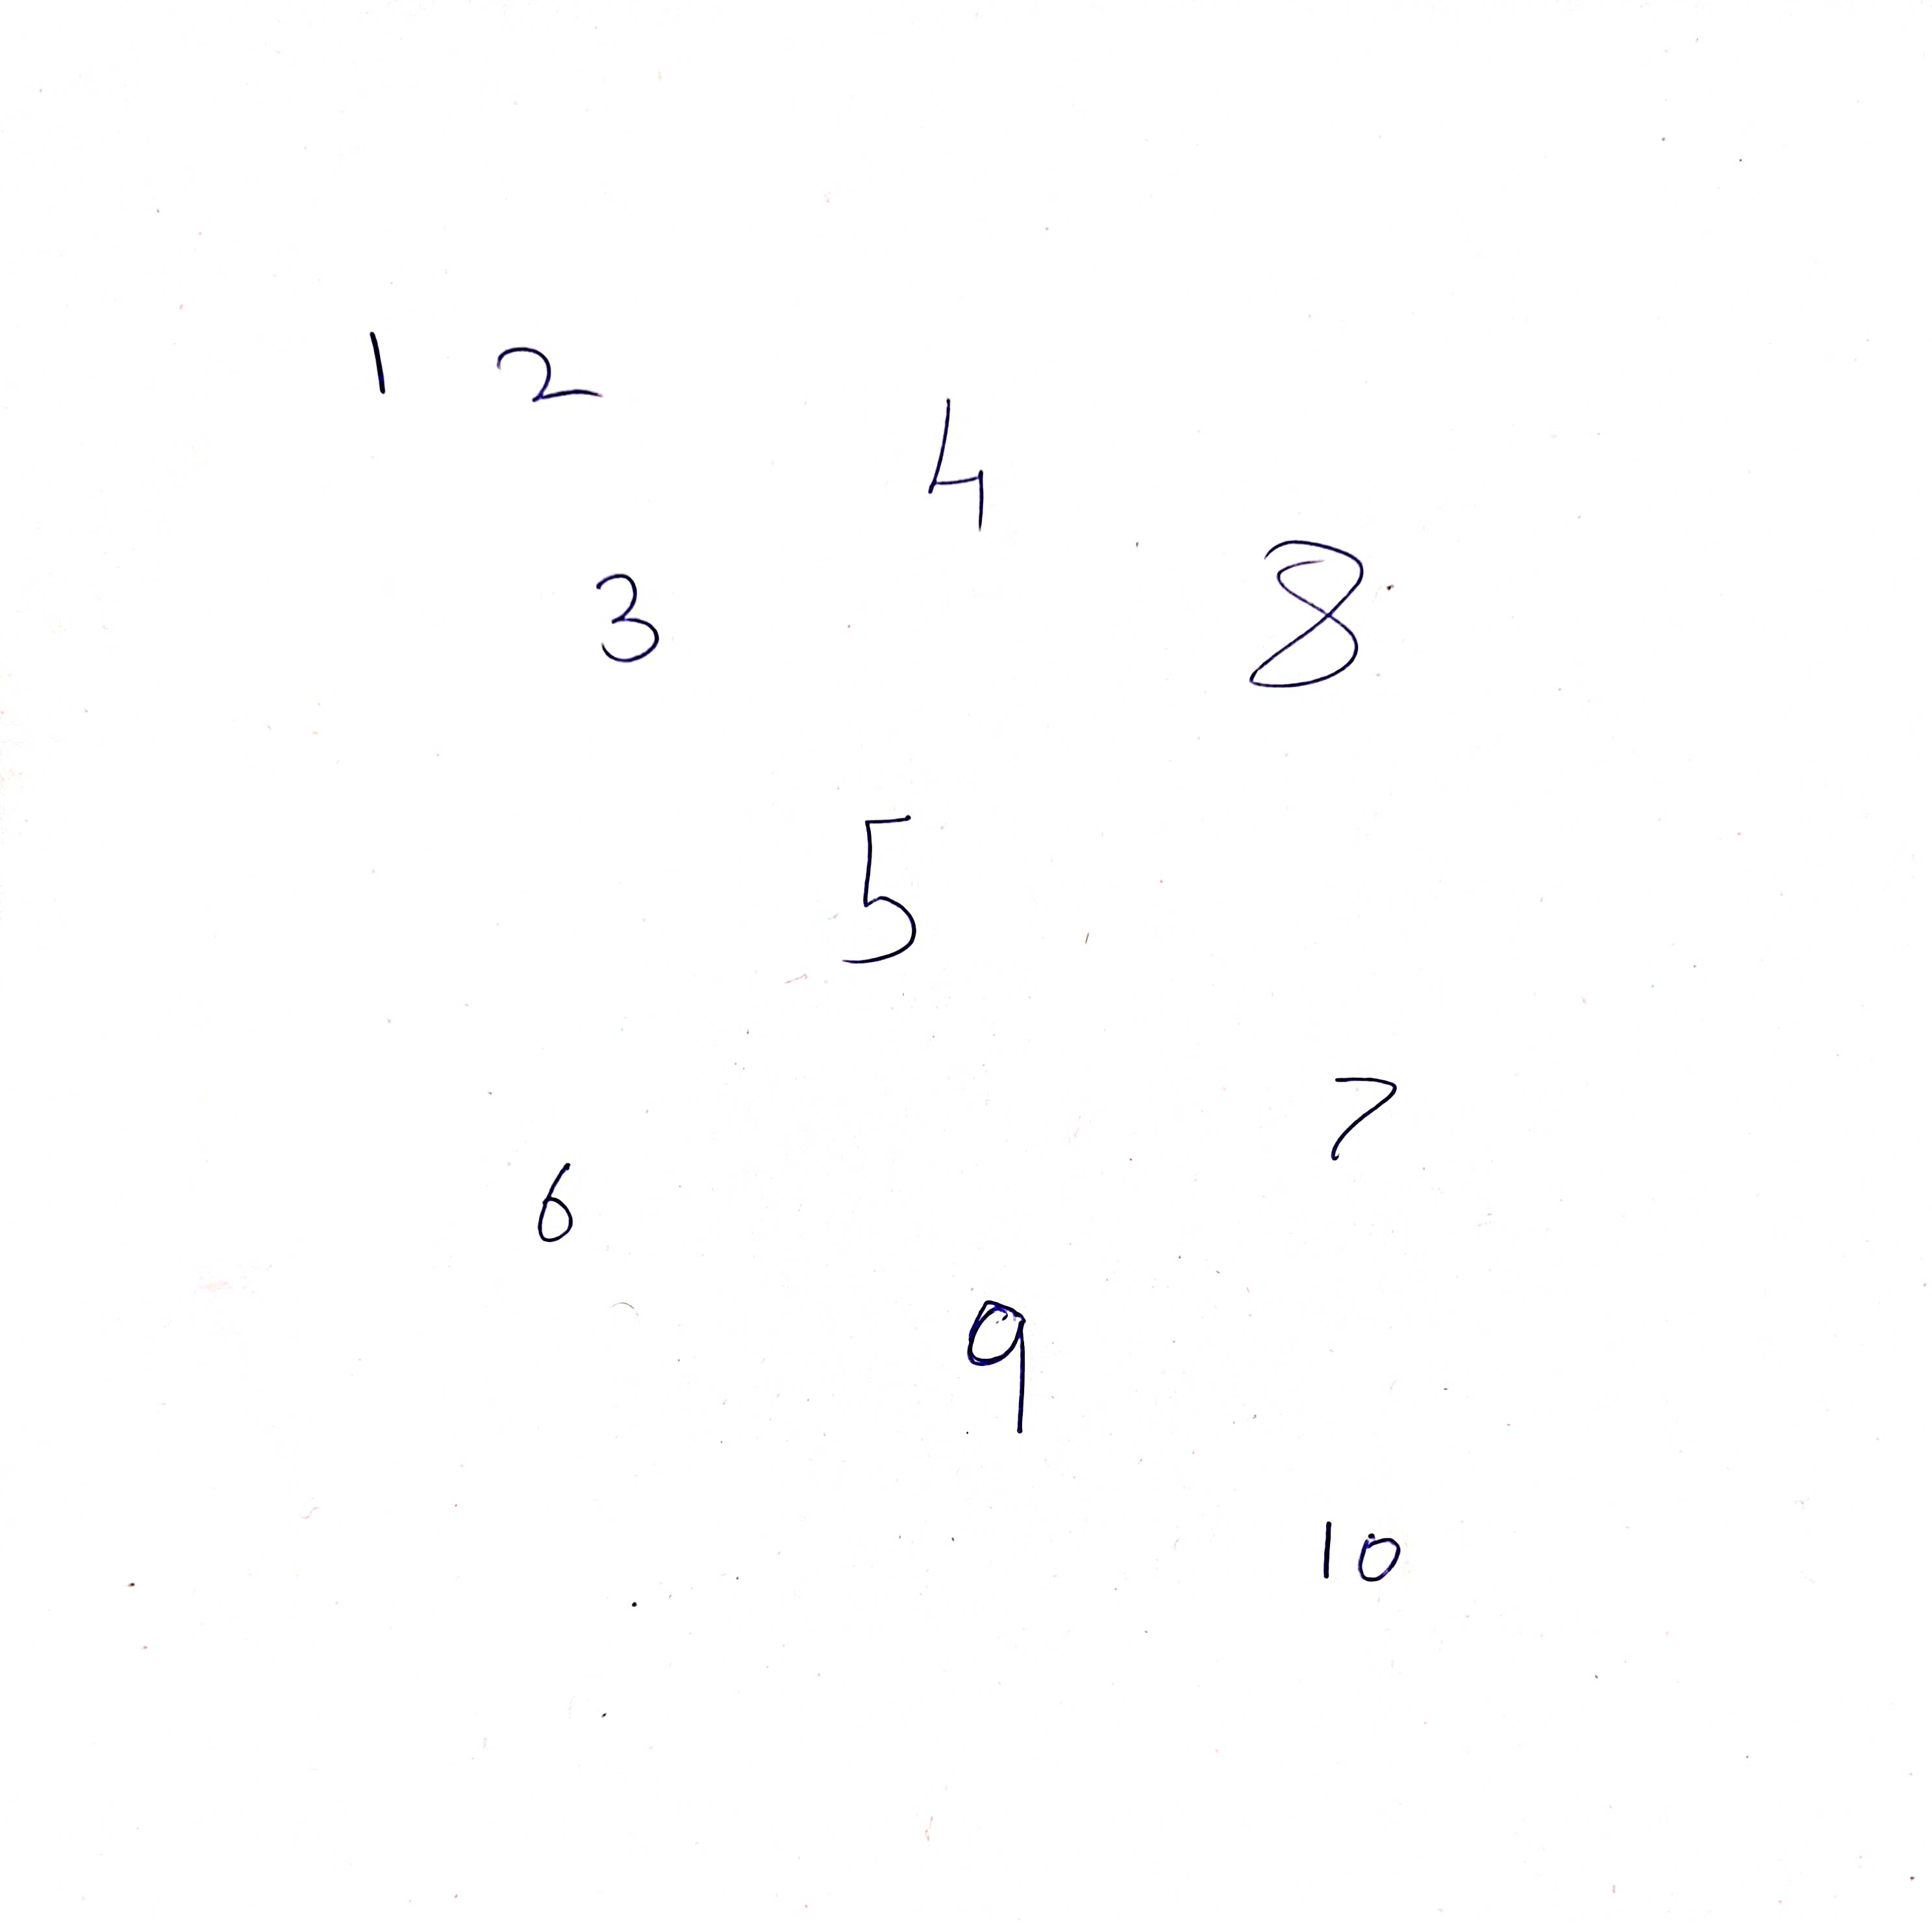 1 2
4
3 8
5
7
6
9
10